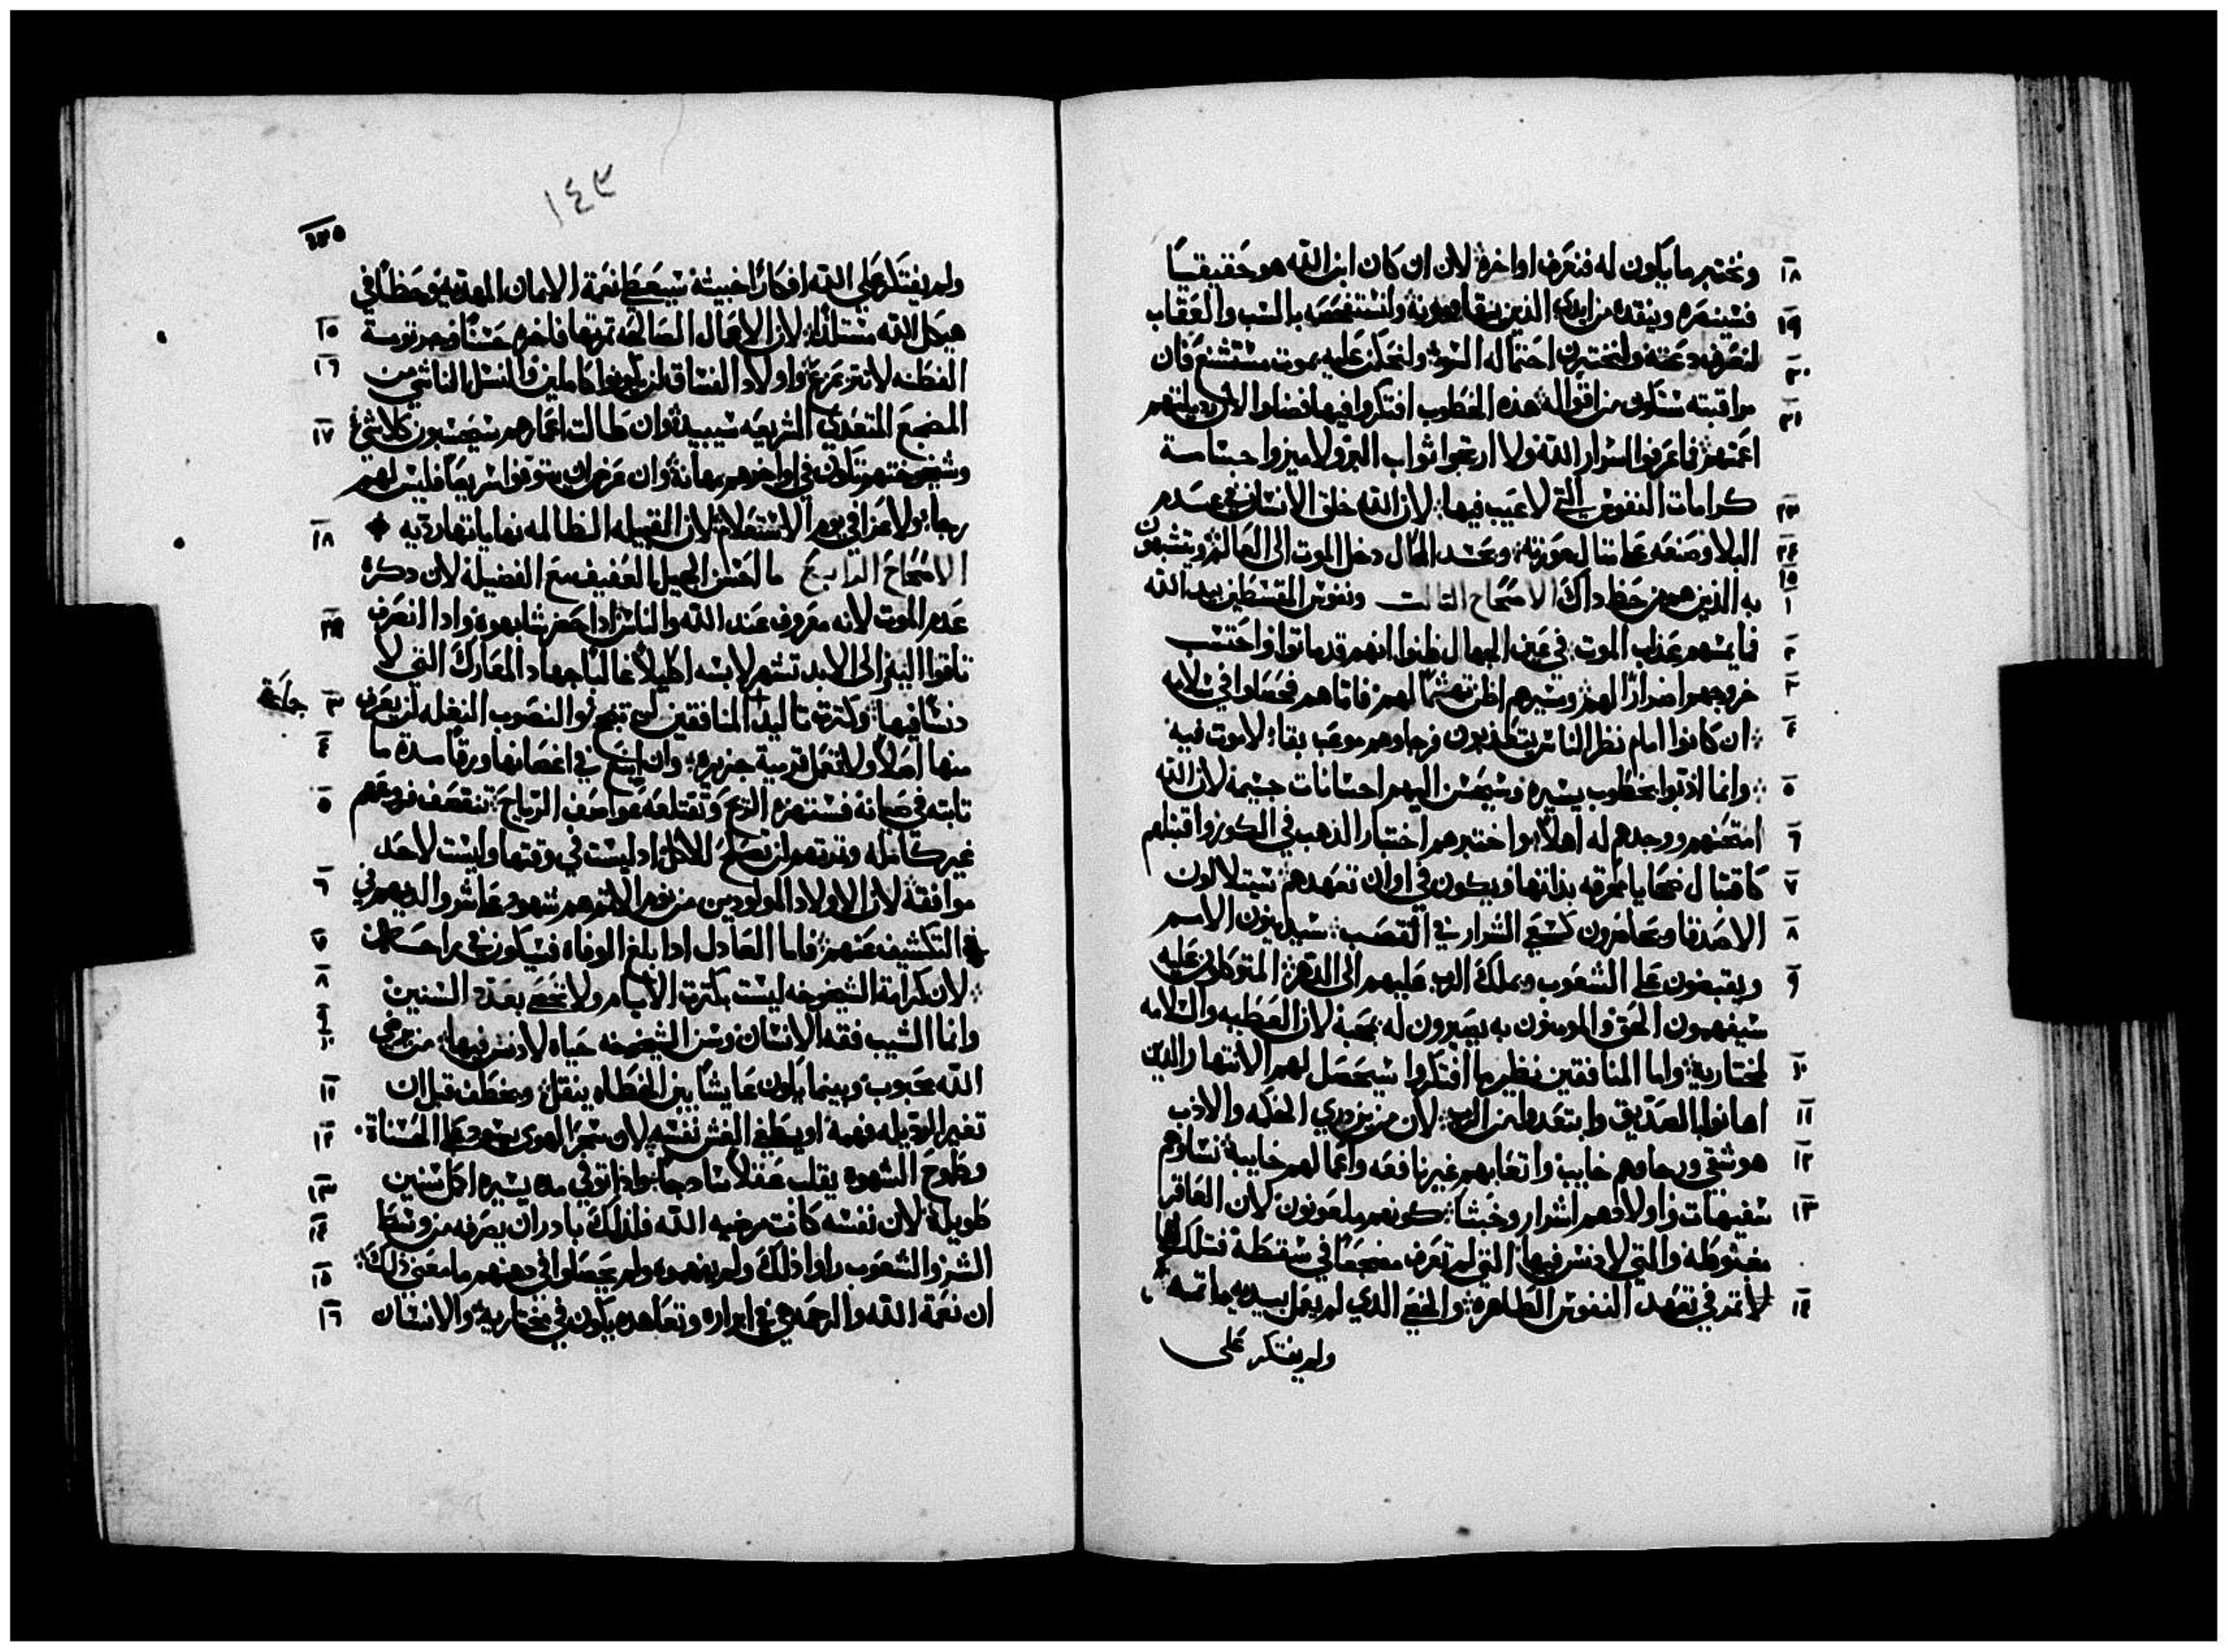 ١٨ ونختبر ما يكون له فنعرف اواخره لان ان كان ابن الله هو حقيقيًا
١٩ فسينصره وينقده من ايدي الذين يقاومونه ولنستفحصه بالسب والعقاب
٢٠ لنعرف دعته ولنختبرن احتماله السوء ولنحكمن عليه بموت مستشنع فان
٢١ مراقبته ستكون من اقواله هذه الخطوب افتكروا فيها فضلوا لان رديلتهم
اعمتهم فما عرفوا اسرار الله ولا ارتجوا ثواب البر ولا ميزوا حساسة
٢٣ كرامات النفوس التي لا عيب فيها لان الله خلق الانسان في عدم
٢٤ البلا وصنعه مماثل لصورته وبحسد المحال دخل الموت الى العالم ويتشبهون
٢٥ ١ به الذين هم من حظ داك الاصحاح الثالث ونفوس المقسطين بيد الله
٢ فما يمسهم عذاب الموت في عين الجهال ظنوا انهم قد ماتوا واحتسب
٣ خروجهم اضرارًا لهم وسيرهم اظن تهشمًا لهم فاما هم فحصلوا في سلامه
٤ ان كانوا امام نظر الناس يتعذبون فرجاوهم موعب بقاء لا موت فيه
٥ وانما ادبوا بخطوب يسيره وسيحسن اليهم احسانات جسيمه لان الله
٦ امتحنهم ووجدهم له اهلاً واختبرهم اختبار الذهب في الكور واقتبلهم
٧ كاقتبال ضحايا محرقه بذاتها ويكون في اوان تعهدهم سيتلالون
٨ الاصدقا ويحاضرون كسعي الشرار في القصب سيدينون الامم
٩ ويقبضون على الشعوب ويملك الرب عليهم الى الدهر المتوكلون عليه
سيفهمون الحق والمومنون به يصيرون له بمحبة لان العطيه والسلامه
١٠ لمختاريه واما المنافقين نظير ما افتكروا سيحصل لهم الانتهار الدين
١١ اهانوا بالصديق وابتعدوا من الرب لان من يزدري الحكمه والادب
١٢ هو شقي ورجاوهم خايب واتعابهم غير نافعه واعمالهم خايبة نساوهم
١٣ سفيهات واولادهم اشرار وخبثا كونهم ملعونون لان العاقر
مغبوطه والتي لا دنس فيها التي لم تعرف مضجعًا في سقطة فتلك لها
١٤ لا ثمر في تعهد النفوس الطاهره والخصي الذي لم يعمل بيديه ماتمه
ولم يفتكر على
١٤٣
ولم يفتكر على الله افكارًا خبيثة سيعطى نعمة الايمان المهدبه وحظًا في
١٥ هيكل الله مستلذا لان الاعمال الصالحه ثمرتها فاخره حسنًا وجرثومة
١٦ الفطنه لا تتزعزع واولاد الفساق لن يكونوا كاملين والنسل الناشي من
١٧ المضجع المتعدي الشريعه سيبيد وان طالت اعمارهم سيحسبون كلا شيء
وشيخوختهم تكون في اواخرهم مهانة وان عرض ان يتوفوا سريعًا فليس لهم
١٨ رجاء ولا عزا في يوم الاستعلام لان القبيله الظالمه نهاياتها رديه
الاصحاح الرابع ما احسن الجيل العفيف مع الفضيلة لان دكره
عدم الموت لانه معروف عند الله والناس اذا حضر شابهوه واذا انصرف
تاقوا اليه والى الابد تشتهر لابسه اكليلاً غالبًا جهاد المعارك التي لا
٣ دنسًا فيها وكثرة تاليد المنافقين لن تنجح والنصوب النغله لن يعرف
٤ منها اصلاً ولا تحمل تربية جزيره وان اينع في اغصانها ورقًا مدة ما
٥ تابته في صيانة فستهزه الريح وتقتلعه عواصف الرياح تنقصف فروعهم
غير كامله وثمرتهم لن تصلح للاكل اد ليست في وقتها وليست لاحد
٦ موافقة لان الاولاد المولودين من نوم الاثم هم شهود على شر والديهم في
٧ في التكشيف عنهم فاما العادل اذا بلغ الوفاه فسيكون في راحة
٨ لان كرامة الشيخوخه ليست بكثرة الايام ولا تحصى بعدد السنين
٩ ١٠ وانما الشيب فقه الانسان وسن الشيخوخه حياه لا دنس فيها من يرضي
١١ الله محبوب وبينما يكون عايشًا بين الخطاه ينقل ويخطف قبل ان
١٢ تغير الرديله فهمه او يطغي الغش نفسه لان سحر الهوى يسود على الحسنات
١٣ وطموح الشهوه يقلب عقلاً سادجًا واذا توفي في مده يسيره اكمل سنين
١٤ طويلة لان نفسه كانت مرضيه الله فلذلك بادر ان يصرفه من وسط
١٥ الشر والشعوب راوا ذلك ولم يفهموه ولم يحصلوا في دهنهم ما معنى ذلك
١٦ ان نعمة الله والرحمه في ابراره وتعاهده يكون في مختاريه والانسان